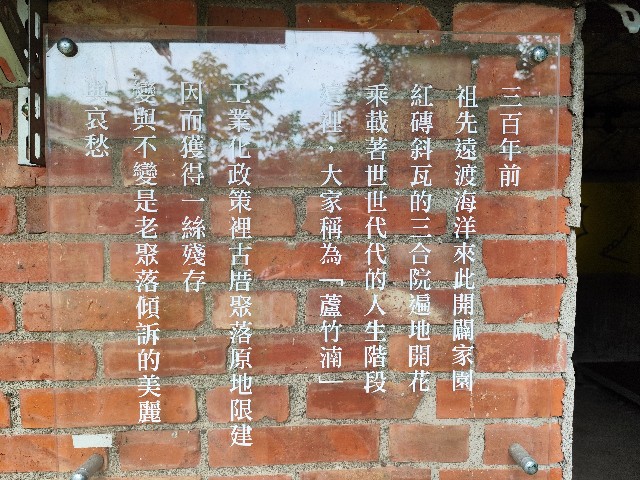 三百年前
祖先遠渡海洋來此開闢家園
紅磚斜瓦的三合院遍地開花
乘載著世世代代的人生階段
這裡，大家稱為「蘆竹湳」
工業化政策裡古厝聚落原地限建
因而獲得一絲殘存
變與不變是老聚落傾訴的美麗
與哀愁